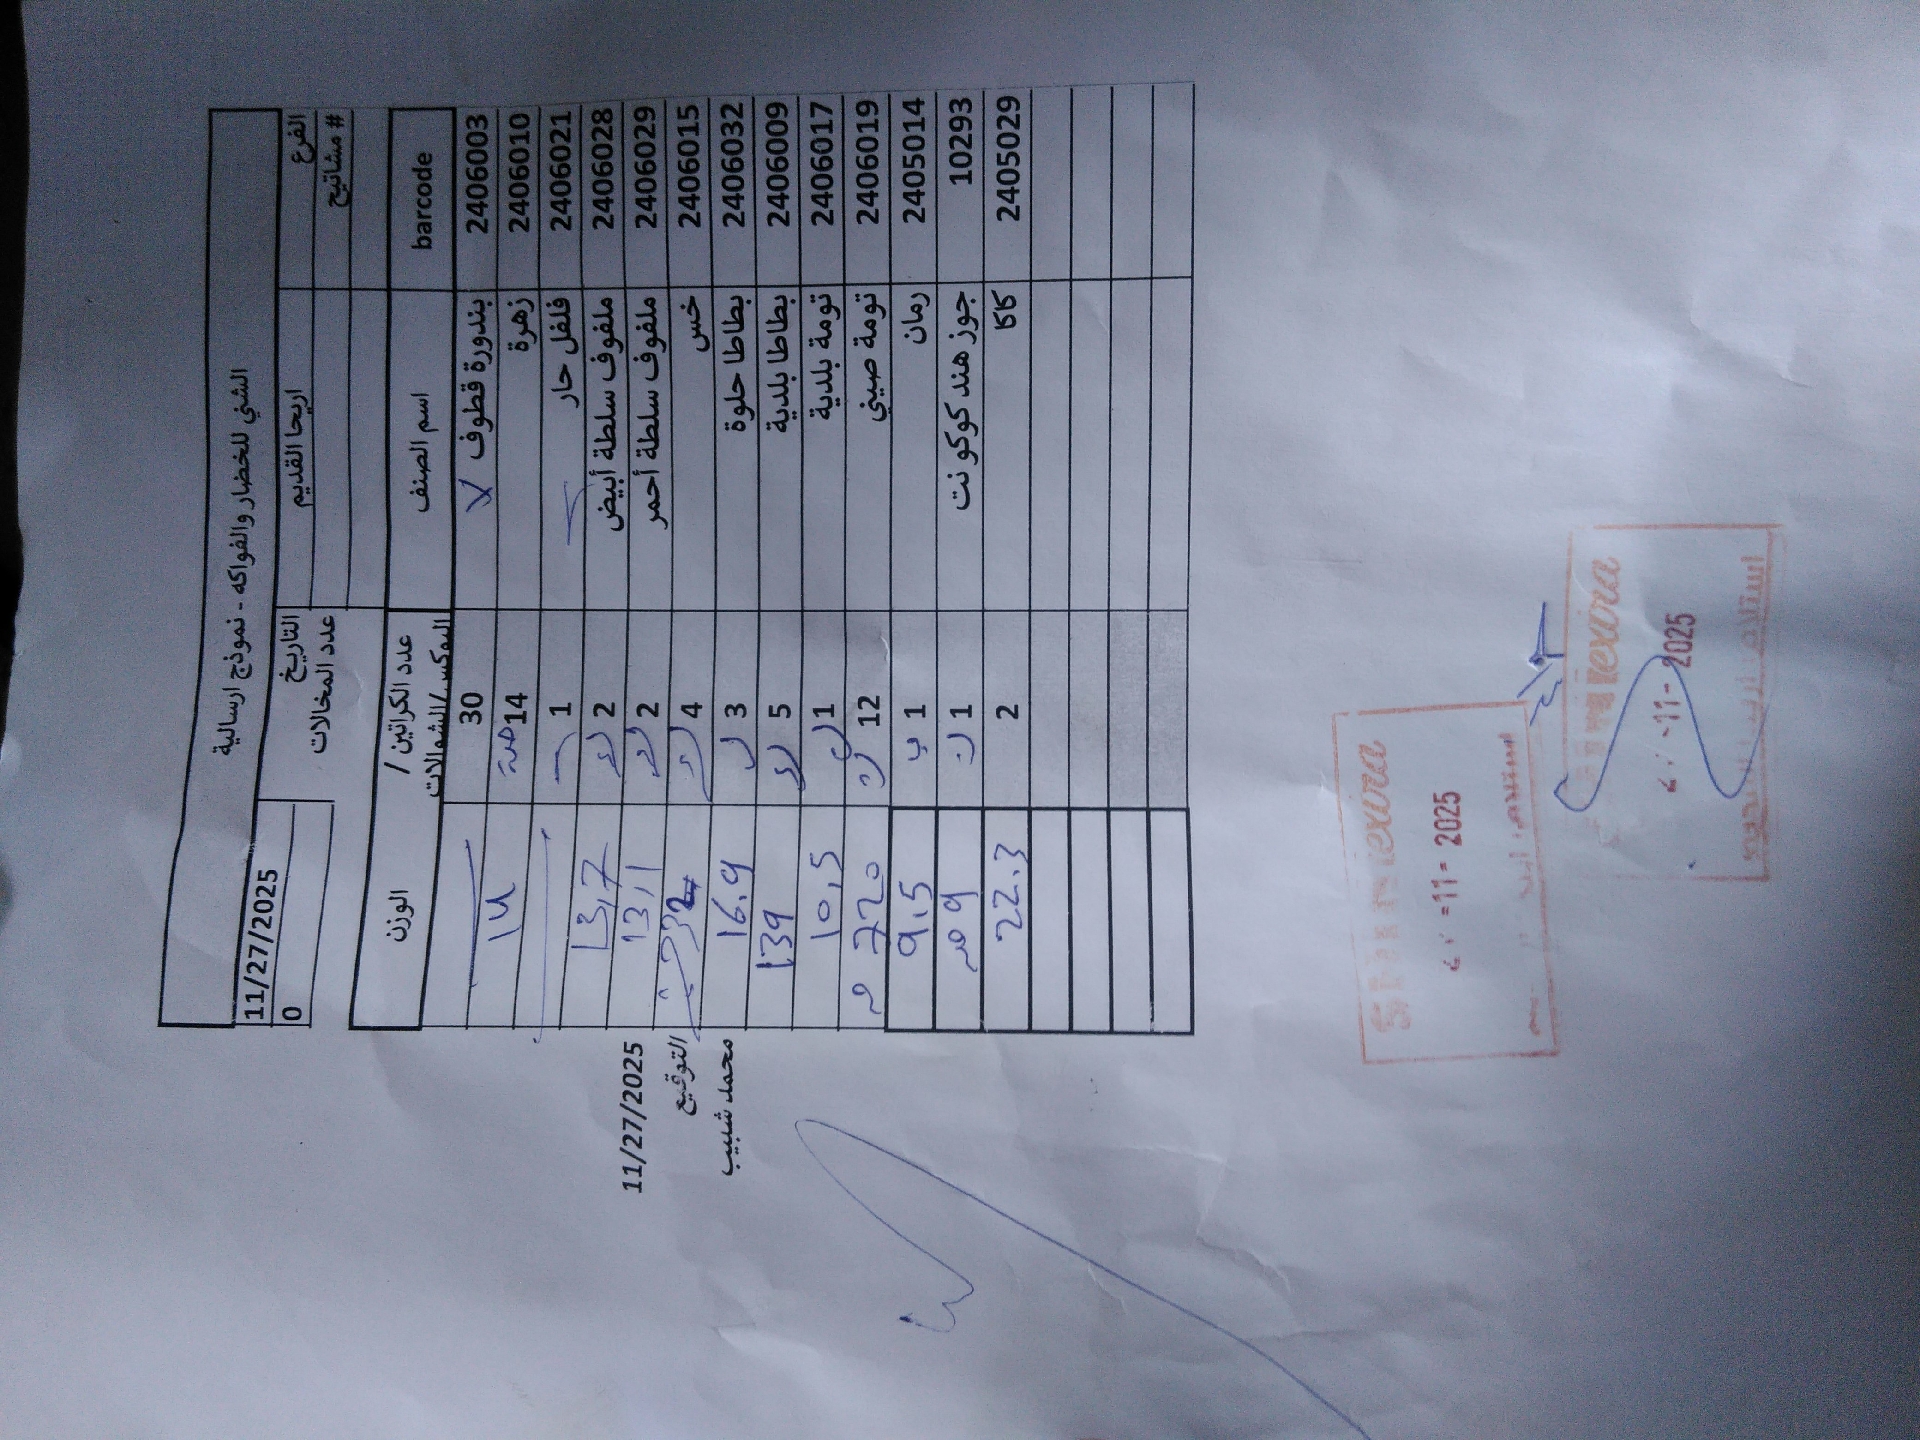 الشني للخضار والفواكه - نموذج ارسالية
الفرع اريحا القديم التاريخ 11/27/2025
# مشاتيح عدد المخالات 0
barcode اسم الصنف عدد الكراتين / البوكس/الشوالات الوزن
2406003 بندورة قطوف لا 30
2406010 زهرة 14 حبة 14
2406021 فلفل حار 1
2406028 ملفوف سلطة أبيض 2 13,7
2406029 ملفوف سلطة أحمر 2 13,1
2406015 خس 4
2406032 بطاطا حلوة 3 16.9
2406009 بطاطا بلدية 5 139
2406017 تومة بلدية 1 10,5
2406019 تومة صيني 12 720
2405014 رمان 1 9,5
10293 جوز هند كوكو نت 1 9
2405029 كاكا 2 22.3
11/27/2025
التوقيع
محمد شلبيب
-11- 2025
استلام
-11- 2025
استلام